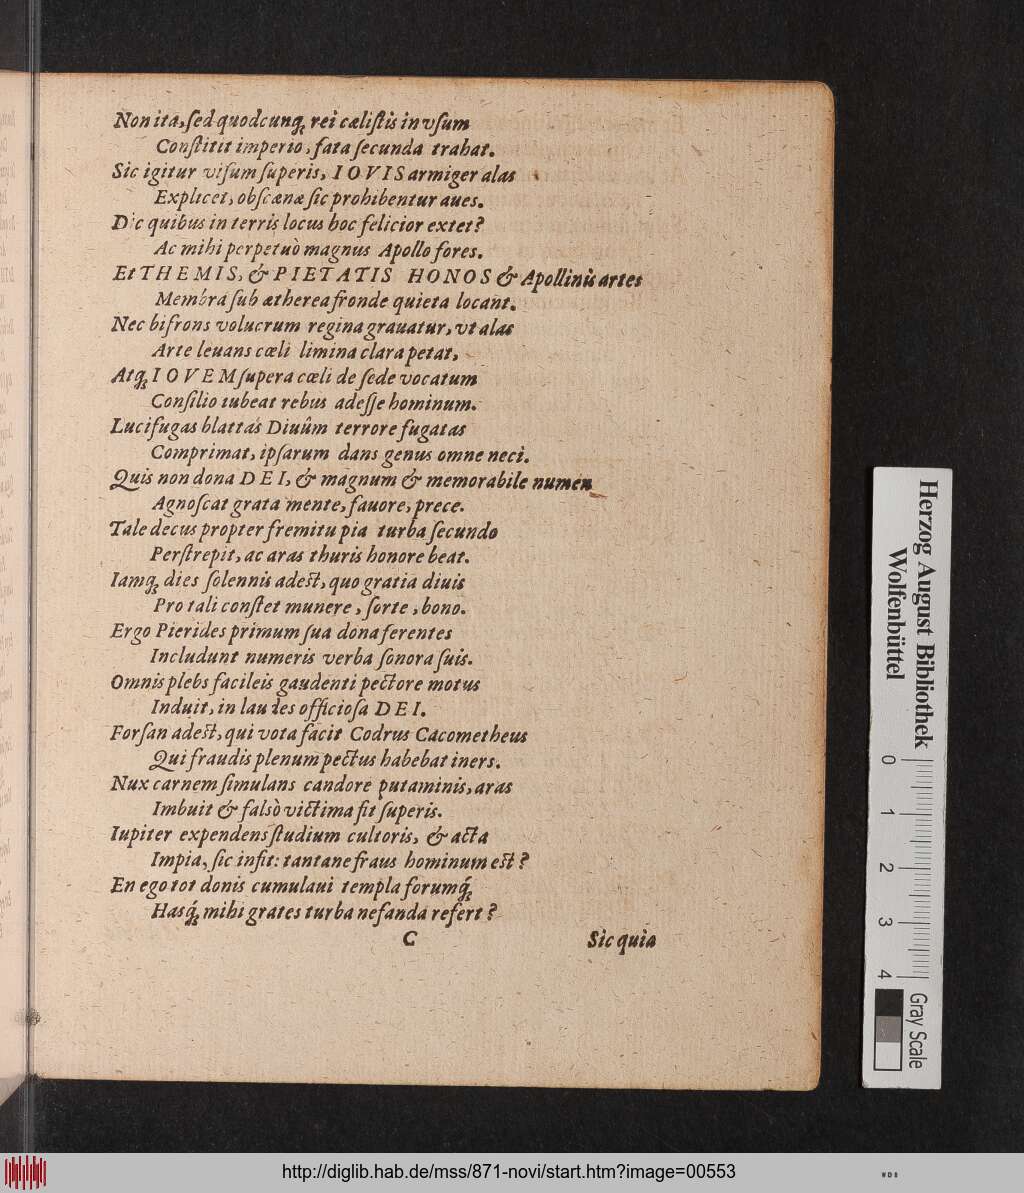 Non ita, ſed quodcunq; rei cæliſtis in vſum
Conſtitit imperio, fata ſecunda trahat.
Sic igitur viſum ſuperis, IOVIS armiger alas
Explicet, obſcænæ ſic prohibentur aues.
Dic quibus in terris locus hoc felicior extet?
Ac mihi perpetuò magnus Apollo fores.
Et THEMIS, & PIETATIS HONOS & Apollinis artes
Membra ſub ætherea fronde quieta locant.
Nec bifrons volucrum regina grauatur, vt alas
Arte leuans cœli limina clara petat,
Atq; IOVEM ſupera cœli de ſede vocatum
Conſilio iubeat rebus adeſſe hominum.
Lucifugas blattas Diuûm terrore fugatas
Comprimat, ipſarum dans genus omne neci.
Quis non dona DEI, & magnum & memorabile numen
Agnoſcat grata mente, fauore, prece.
Tale decus propter fremitu pia turba ſecundo
Perſtrepit, ac aras thuris honore beat.
Iamq; dies ſolennis adeſt, quo gratia diuis
Pro tali conſtet munere, ſorte, bono.
Ergo Pierides primum ſua dona ferentes
Includunt numeris verba ſonora ſuis.
Omnis plebs facileis gaudenti pectore motus
Induit, in laudes officioſa DEI.
Forſan adeſt, qui vota facit Codrus Cacometheus
Qui fraudis plenum pectus habebat iners.
Nux carnem ſimulans candore putaminis, aras
Imbuit & falsò victima fit ſuperis.
Iupiter expendens ſtudium cultoris, & acta
Impia, ſic infit: tantane fraus hominum eſt?
En ego tot donis cumulaui templa forumq́;
Hasq́; mihi grates turba nefanda refert?
C Sic quia
Herzog August Bibliothek
Wolfenbüttel
0 1 2 3 4
Gray Scale
http://diglib.hab.de/mss/871-novi/start.htm?image=00553
WDB